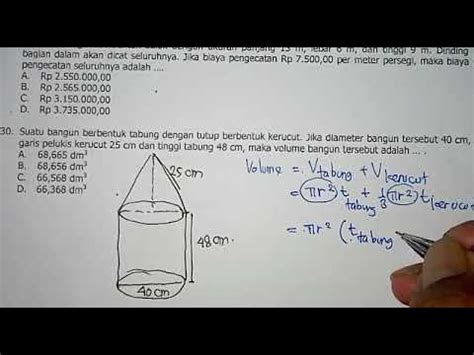 dengan ukuran panjang 13 m, lebar 6 m, dan tinggi 9 m. Dinding
bagian dalam akan dicat seluruhnya. Jika biaya pengecatan Rp 7.500,00 per meter persegi, maka biaya
pengecatan seluruhnya adalah ....
A. Rp 2.550.000,00
B. Rp 2.565.000,00
C. Rp 3.150.000,00
D. Rp 3.735.000,00
30. Suatu bangun berbentuk tabung dengan tutup berbentuk kerucut. Jika diameter bangun tersebut 40 cm,
garis pelukis kerucut 25 cm dan tinggi tabung 48 cm, maka volume bangun tersebut adalah ... .
A. 68,665 dm³
B. 68,656 dm³
C. 66,568 dm³
D. 66,368 dm³
25 cm
48 cm
40 cm
Volume = V tabung + V kerucut
= πr² t tabung + 1/3 πr² t kerucut
= πr² ( t tabung